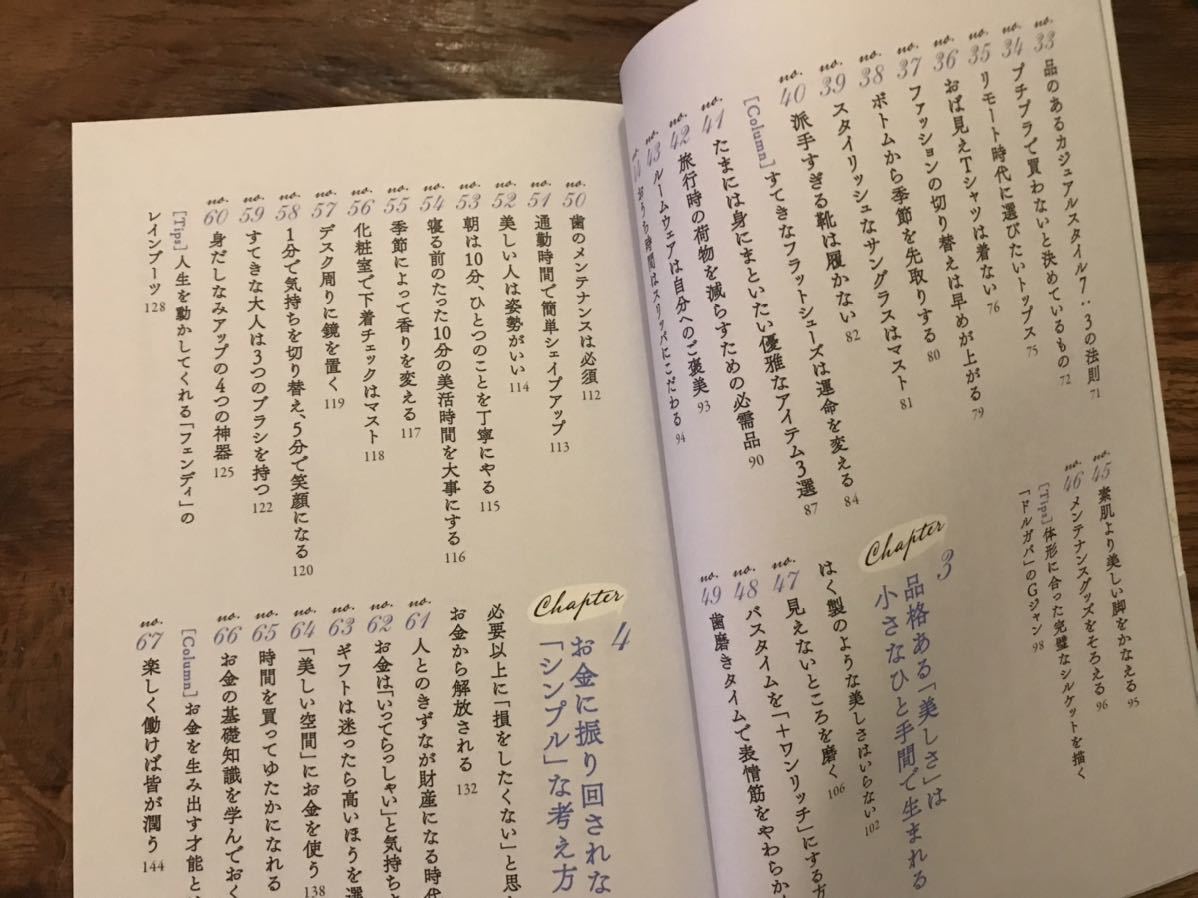 no.33 品のあるカジュアルスタイル7:3の法則 71
no.34 プチプラで買わないと決めているもの 72
no.35 リモート時代に選びたいトップス 75
no.36 おば見えTシャツは着ない 76
no.37 ファッションの切り替えは早めが上がる 79
no.38 ボトムから季節を先取りする 80
no.39 スタイリッシュなサングラスはマスト 81
no.40 派手すぎる靴は履かない 82
[Column] すてきなフラットシューズは運命を変える 84
no.41 たまには身にまといたい優雅なアイテム3選 87
no.42 旅行時の荷物を減らすための必需品 90
no.43 ルームウェアは自分へのご褒美 93
おうち時間はスリッパにこだわる 94
no.45 素肌より美しい脚をかなえる 95
no.46 メンテナンスグッズをそろえる 96
[Tips] 体形に合った完璧なシルケットを描く
「ドルガバ」のGジャン 98
Chapter 3 品格ある「美しさ」は
小さなひと手間で生まれる
はく製のような美しさはいらない 102
no.47 見えないところを磨く 106
no.48 バスタイムを「+ワンリッチ」にする方
no.49 歯磨きタイムで表情筋をやわらか
no.50 歯のメンテナンスは必須 112
no.51 通勤時間で簡単シェイプアップ 113
no.52 美しい人は姿勢がいい 114
no.53 朝は10分、ひとつのことを丁寧にやる 115
no.54 寝る前のたった10分の美活時間を大事にする 116
no.55 季節によって香りを変える 117
no.56 化粧室で下着チェックはマスト 118
no.57 デスク周りに鏡を置く 119
no.58 1分で気持ちを切り替え、5分で笑顔になる 120
no.59 すてきな大人は3つのブラシを持つ 122
no.60 身だしなみアップの4つの神器 125
[Tips] 人生を動かしてくれる「フェンディ」の
レインブーツ 128
Chapter 4 お金に振り回されな
「シンプル」な考え方
必要以上に「損をしたくない」と思
お金から解放される 132
no.61 人とのきずなが財産になる時代
no.62 お金は「いってらっしゃい」と気持ち
no.63 ギフトは迷ったら高いほうを選
no.64 「美しい空間」にお金を使う 138
no.65 時間を買ってゆたかになれる
no.66 お金の基礎知識を学んでおく
[Column] お金を生み出す才能と
no.67 楽しく働けば皆が潤う 144